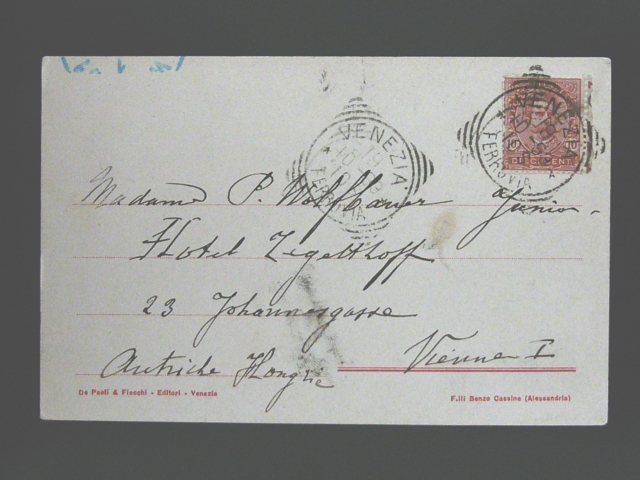 VENEZIA
FERROVIA
VENEZIA
FERROVIA
DIECI CENT.
Madame P. Wolfbauer Junior.
Hotel Tegetthoff
23 Johannesgasse
Vienne I
Autriche Hongrie
De Paoli & Fiecchi - Editori - Venezia
F.lli Benzo Cassine (Alessandria)